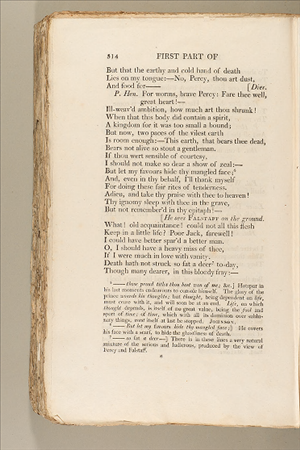 514 FIRST PART OF
But that the earthy and cold hand of death
Lies on my tongue:—No, Percy, thou art dust,
And food for—— [Dies.
P. Hen. For worms, brave Percy: Fare thee well,
great heart!—
Ill-weav'd ambition, how much art thou shrunk!
When that this body did contain a spirit,
A kingdom for it was too small a bound;
But now, two paces of the vilest earth
Is room enough:—This earth, that bears thee dead,
Bears not alive so stout a gentleman.
If thou wert sensible of courtesy,
I should not make so dear a show of zeal:—
But let my favours hide thy mangled face;
And, even in thy behalf, I'll thank myself
For doing these fair rites of tenderness.
Adieu, and take thy praise with thee to heaven!
Thy ignomy sleep with thee in the grave,
But not remember'd in thy epitaph!—
[He sees FALSTAFF on the ground.
What! old acquaintance! could not all this flesh
Keep in a little life? Poor Jack, farewell!
I could have better spar'd a better man.
O, I should have a heavy miss of thee,
If I were much in love with vanity.
Death hath not struck so fat a deer to-day,
Though many dearer, in this bloody fray:—
—— those proud titles thou hast won of me; &c.] Hotspur in
his last moments endeavours to console himself. The glory of the
prince wounds his thoughts; but thought, being dependent on life,
must cease with it, and will soon be at an end. Life, on which
thought depends, is itself of no great value, being the fool and
sport of time; of time, which with all its dominion over sublu-
nary things, must itself at last be stopped. JOHNSON.
—— But let my favours hide thy mangled face;] He covers
his face with a scarf, to hide the ghastliness of death.
—— so fat a deer—] There is in these lines a very natural
mixture of the serious and ludicrous, produced by the view of
Percy and Falstaff.